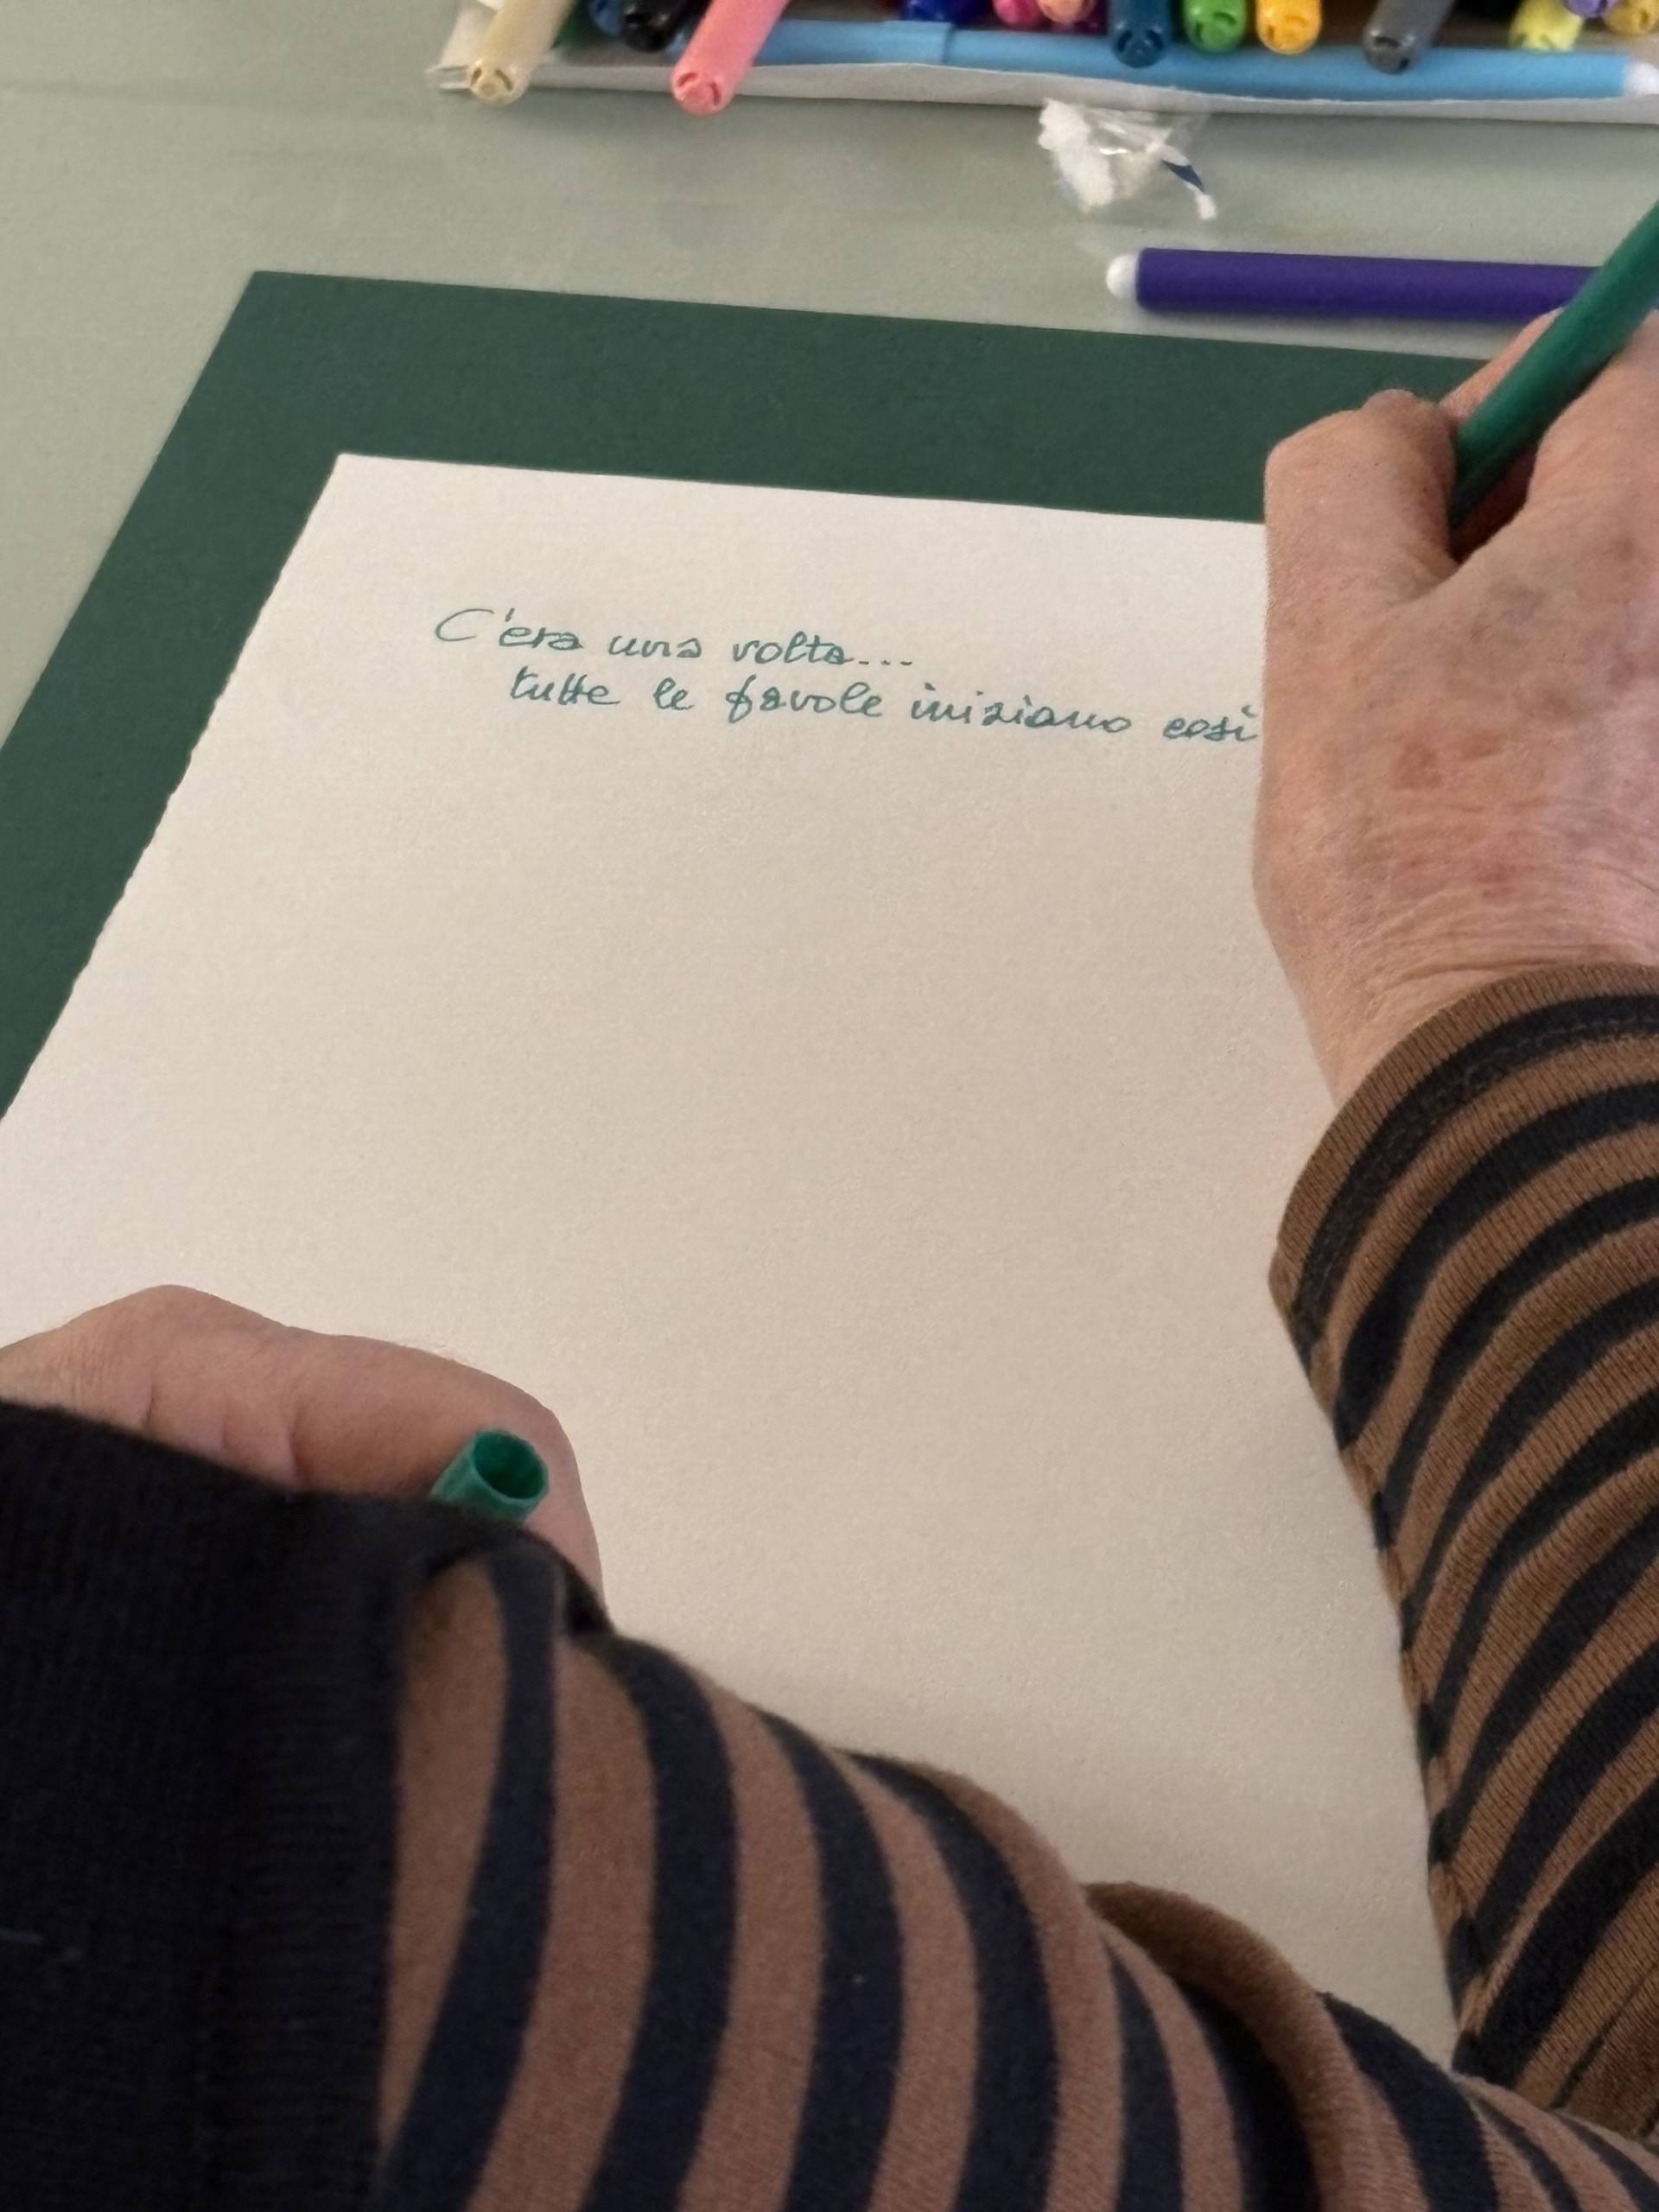 C'era una volta...
tutte le favole iniziano così